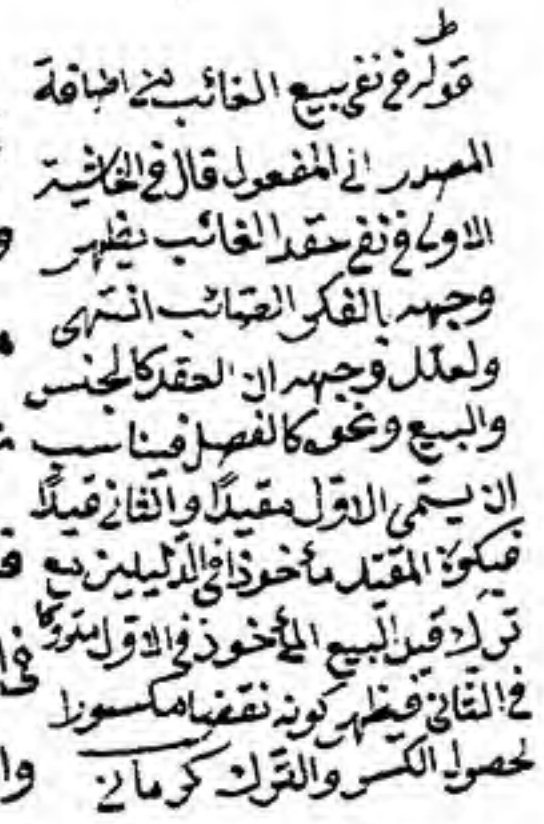 ط
قوله في نفي بيع الغائب من اضافة
المصدر الى المفعول قال في الحاشية
الاولى في نفي عقد الغائب يظهر
وجهه بالفكر الصائب انتهى
ولعلل وجهه ان العقد كالجنس
والبيع ونحوه كالفصل فيناسب
ان يسمى الاول مقيدًا والثاني قيدًا
فيكون المقيد مأخوذا في الدليلين مع
ترك قيد البيع المأخوذ في الاول متروكا
في الثاني فيظهر كونه نقضا مكسورا
لحصول الكسر والترك كرماني